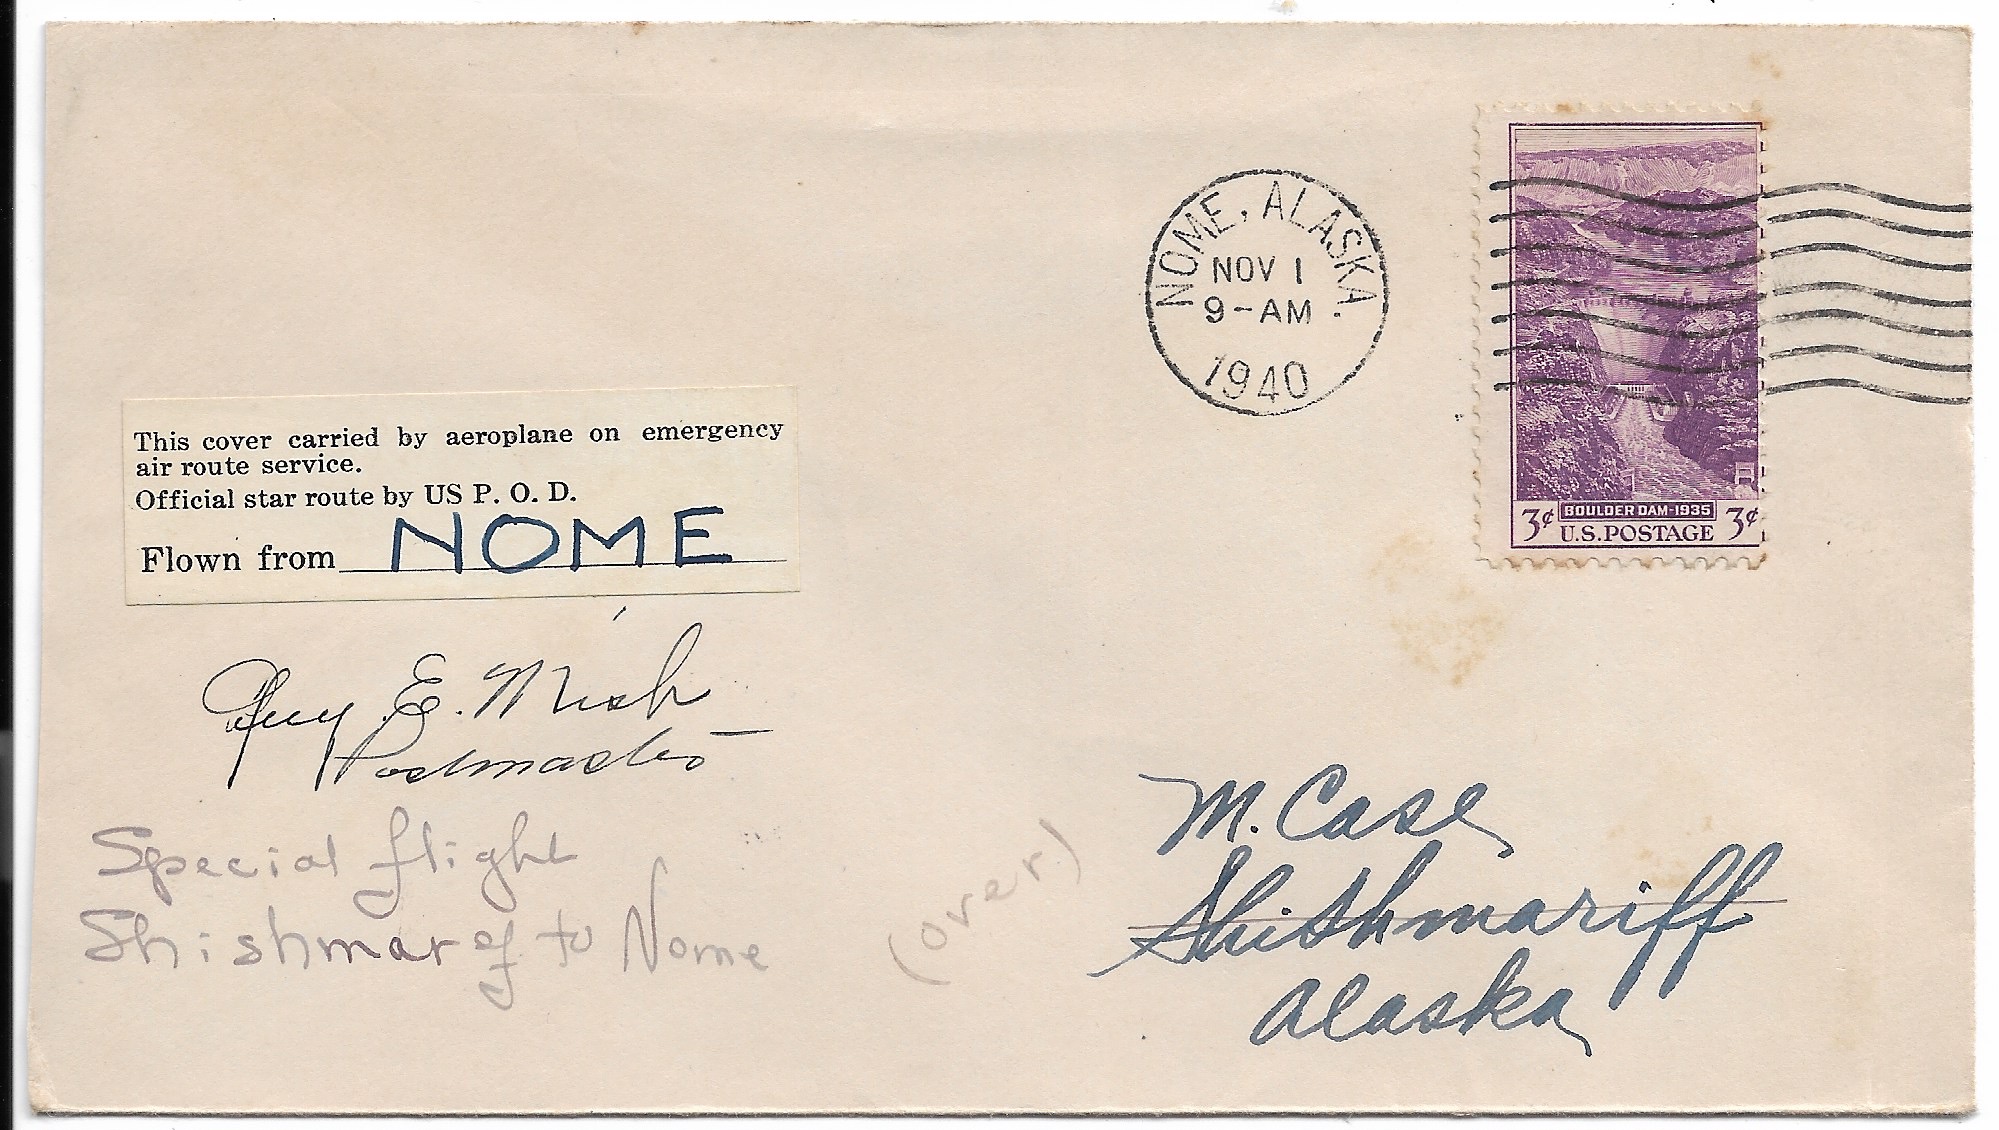 NOME, ALASKA.
NOV 1
9-AM
1940
BOULDER DAM-1935
3¢ U.S.POSTAGE 3¢
This cover carried by aeroplane on emergency
air route service.
Official star route by US P. O. D.
Flown from NOME
Guy E. Mish
Postmaster
Special flight
Shishmaref to Nome
(over)
M. Case
Shishmariff
Alaska